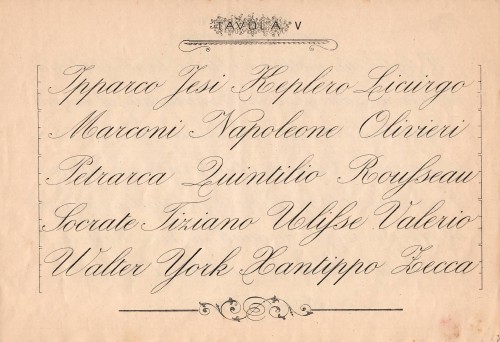 TAVOLA V
Ipparco Jesi Keplero Licurgo
Marconi Napoleone Olivieri
Petrarca Quintilio Rouſseau
Socrate Tiziano Uliſse Valerio
Walter York Xantippo Zecca